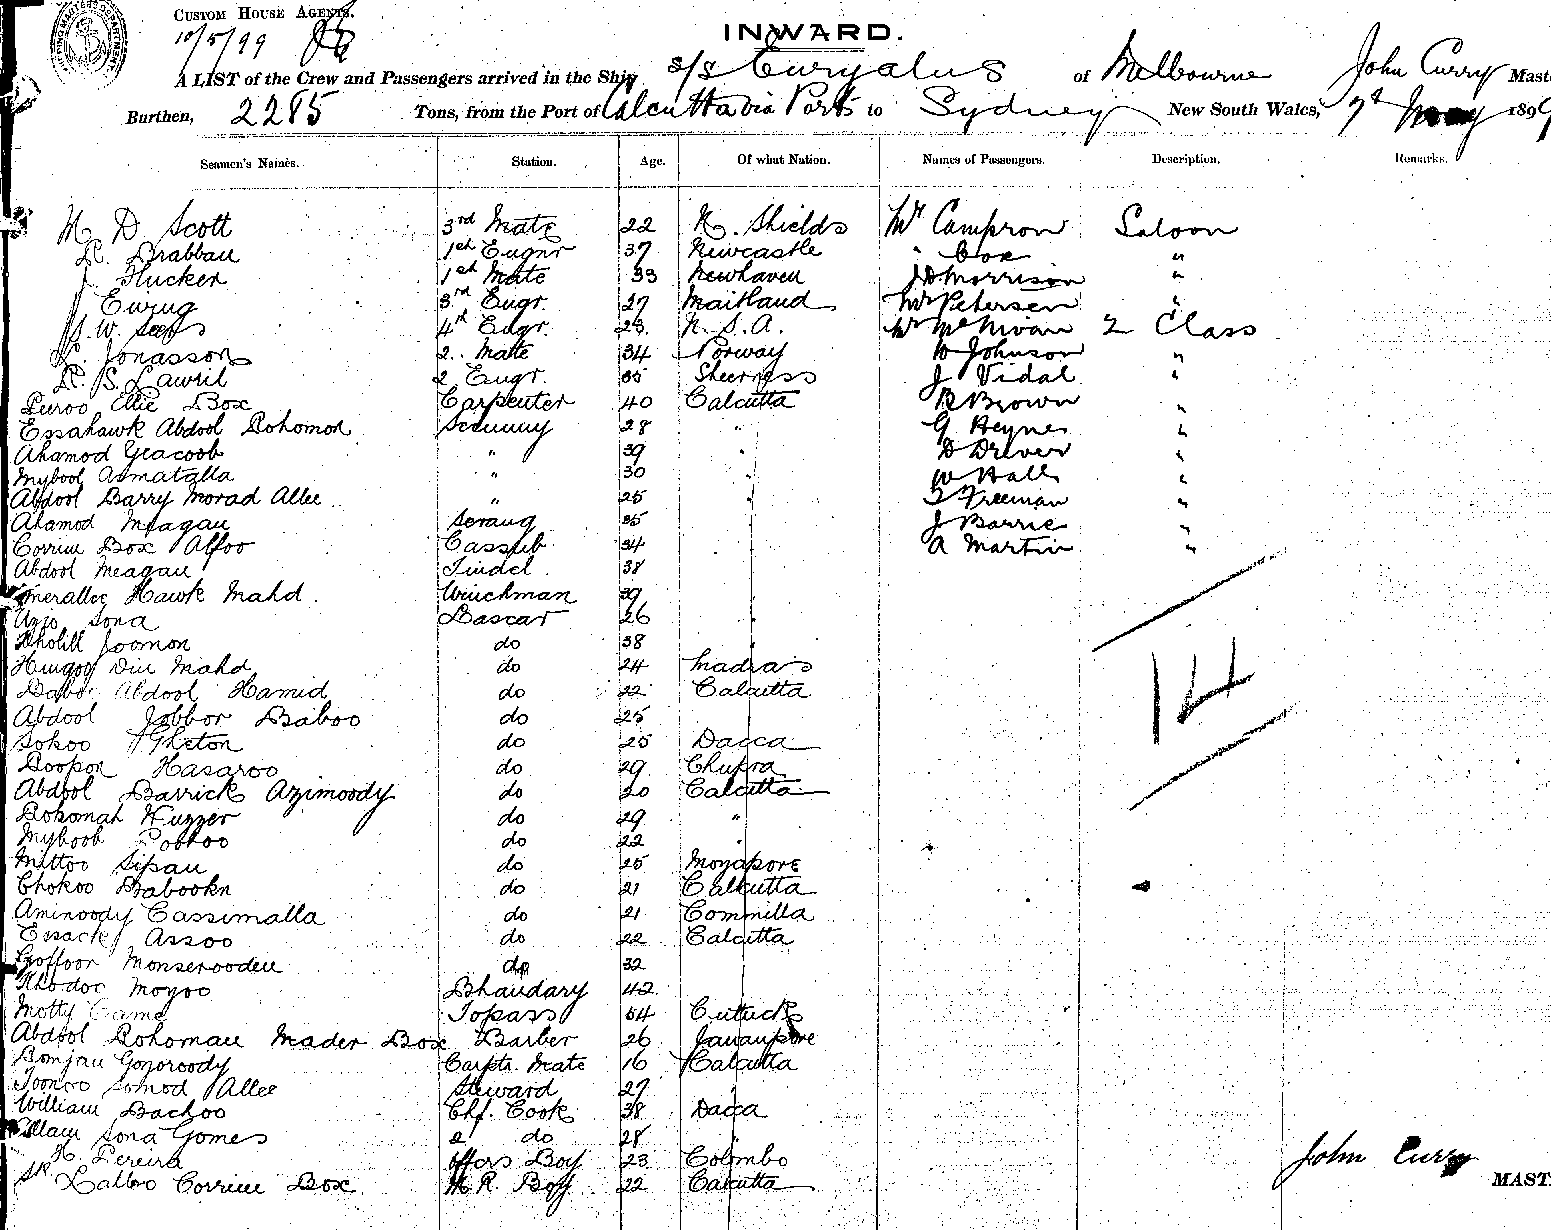 CUSTOM HOUSE AGENTS.
10/5/99
INWARD.
A LIST of the Crew and Passengers arrived in the Ship s/s Euryalus of Melbourne John Curry Maste
Burthen, 2285 Tons, from the Port of Calcutta via Ports to Sydney New South Wales, 9th May 1899
Seamen's Names. Station. Age. Of what Nation. Names of Passengers. Description. Remarks.
D Scott 3rd Mate 22 N. Shields Mr Campron Saloon
Brabbau 1st Engnr 37 Newcastle " Cox "
Hucker 1st Mate 33 Newhaven JD Morrison "
Ewing 3rd Engr. 27 Maitland Mr Petersen "
W. 4th Engr. 23. N. S. A. Mr McNivan 2 Class
Jonasson 2. Mate 34 Norway W Johnson "
S. Lawril 2 Engr. 35 Sheerness J Vidal "
Puroo Ellie Box Carpenter 40 Calcutta R Brown "
Essahawk Abdool Rohomon Seacunny 28 " G Heynes "
Ahamod Yeacoob " 39 " D Driver "
Mybool Asmatalla " 30 W Hall "
Abdool Barry Morad Allee " 25 T Freeman "
Ahamod Meagan Serang 35 J Barrie "
Corrim Box Alfoo Cassub 34 A Martin "
Abdool Meagan Tindel 38
Omerallee Hawk Mahd. Winchman 39
Sona Lascar 26
Kholill Joomon do 38
Hingoo Din Mahd do 24 Madras
Abdool Hamid do 22 Calcutta
Abdool Jobbor Baboo do 25
Sokoo Gheton do 25 Dacca
Doopon Hasaroo do 29 Chupra
Abdool Barrick Azimoody do 20 Calcutta
Rohomah Huzzer do 29 "
Myboob Pobkoo do 22
Mittoo Sipau do 25 Moyapore
Chokoo Babookn do 21 Calcutta
Aminoody Cassimalla do 21 Commilla
Essack Assoo do 22 Calcutta
Goffoor Monseroodeu do 32
Khodoc Moyoo Bhandary 42
Motty Topass 54 Cuttuck
Abdool Rohoman Mader Box Barber 26
Bomjau Goyoroody Carptr. Mate 16 Calcutta
Toonoo Somod Allee Steward 27
William Bachoo Chf. Cook 38 Dacca
Sona Gomes 2 do 28 "
Pereira Offcrs Boy 23 Colombo
Lalloo Corrim Box M.R. Boy 22 Calcutta
14
John Curry
MAST